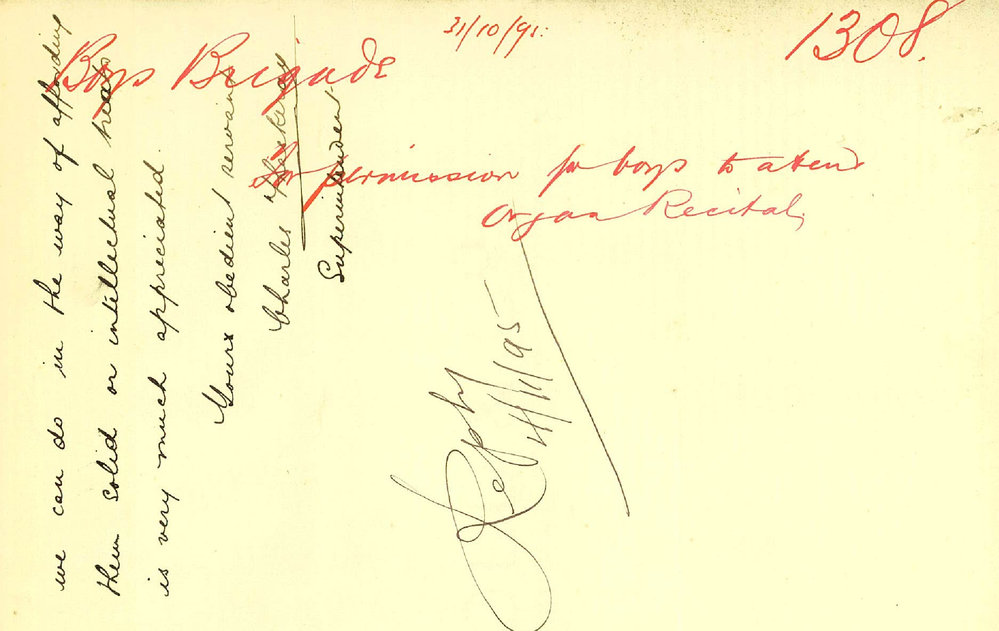 31/10/91.
1308.
Boys Brigade
For permission for boys to attend
Organ Recital,
we can do in the way of affording
them solid or intellectual treats
is very much appreciated.
Yours obedient servant
Charles
Superintendent
Reply
4/11/95